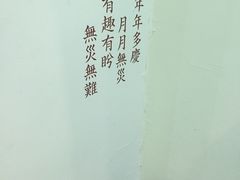 年年多慶
月月無災
有趣有盼
無災無難